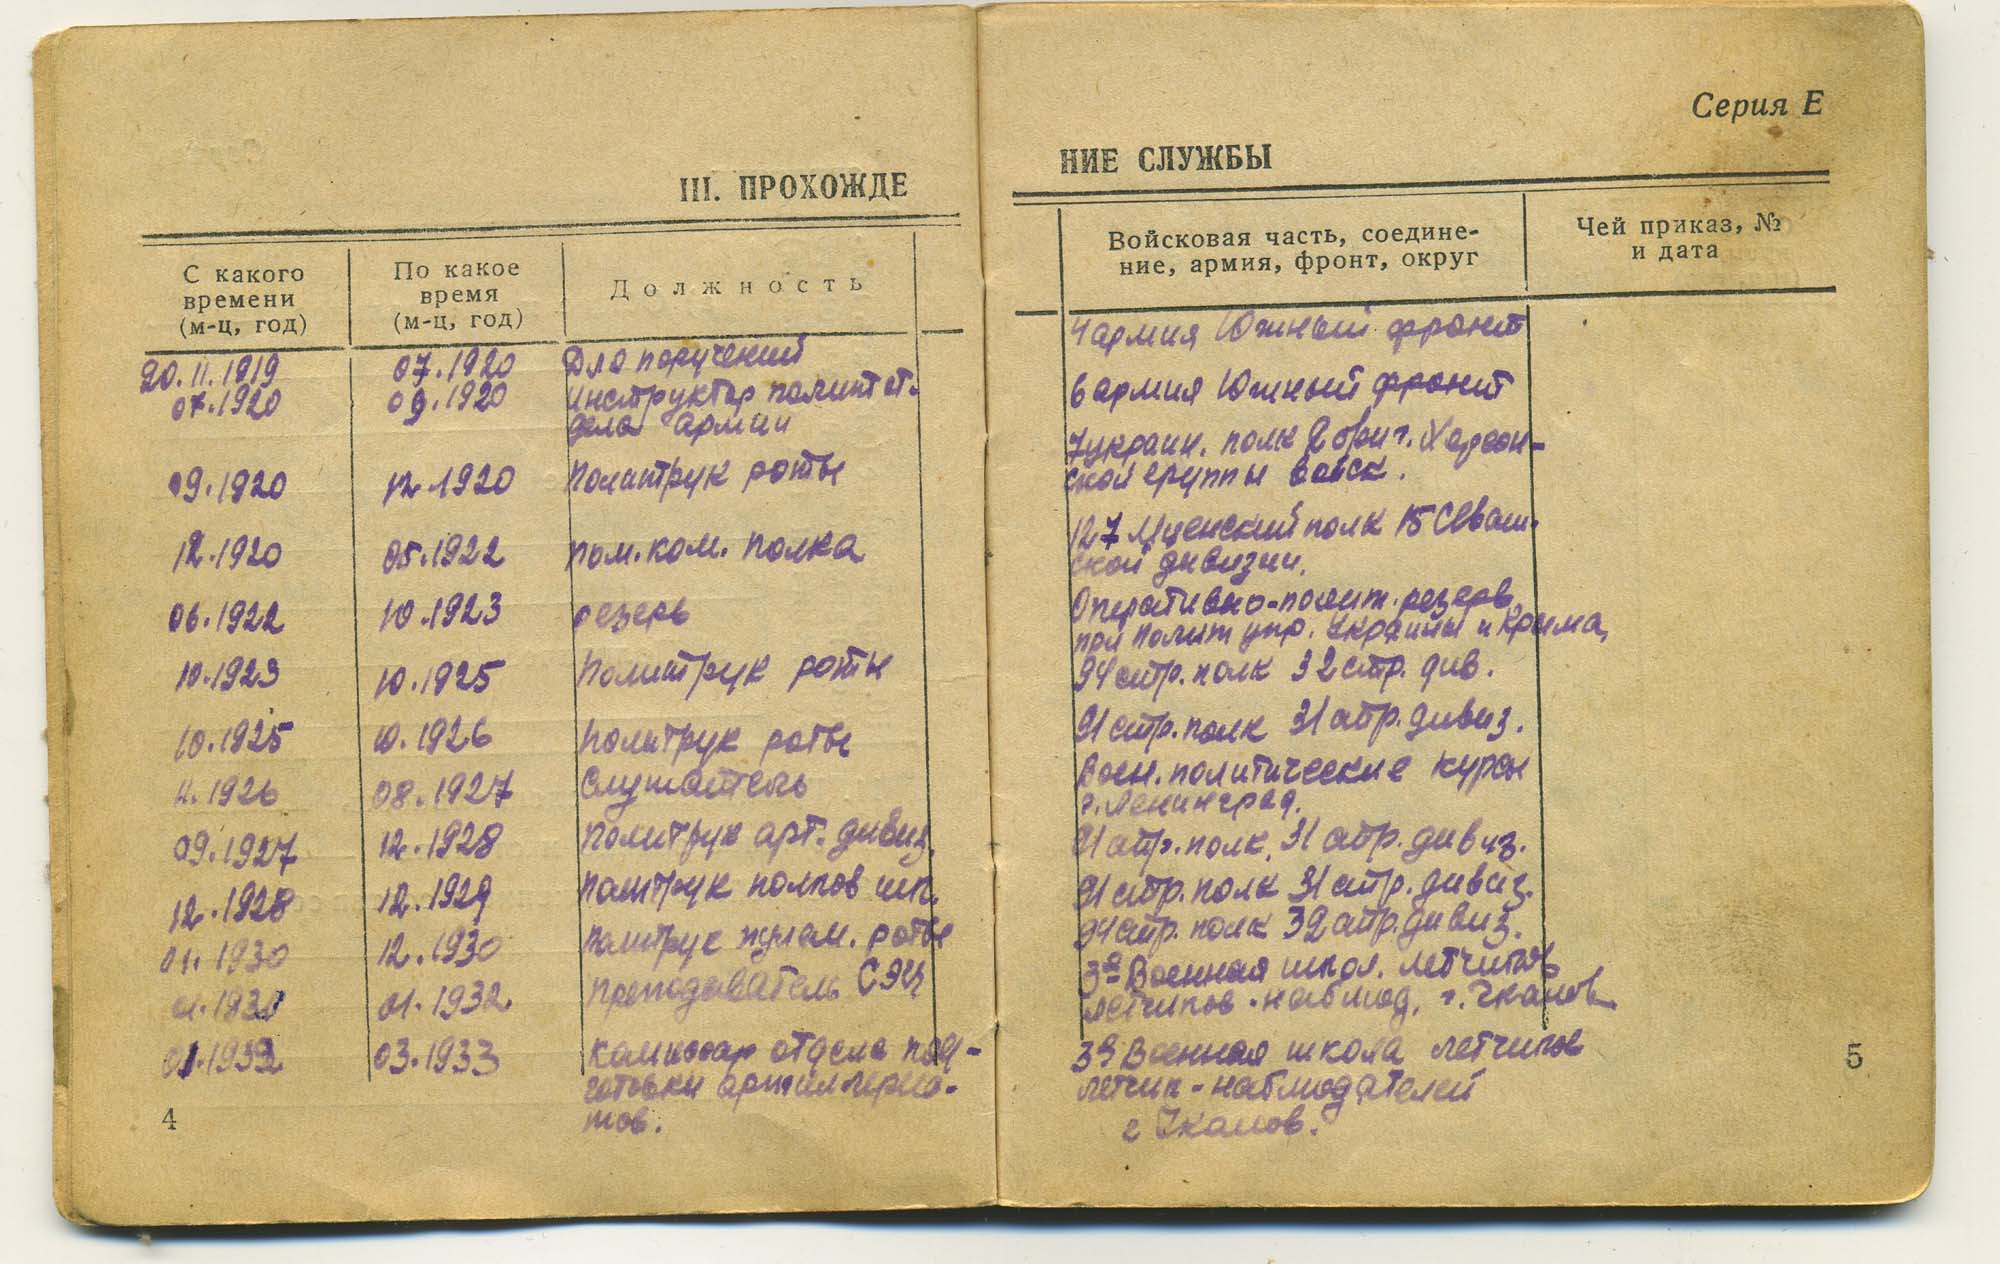 III. ПРОХОЖДЕ
С какого
времени
(м-ц, год)
По какое
время
(м-ц, год)
Должность
20.11.1919 07.1920 Для поручений
07.1920 09.1920 инструктор политот-
дела армии
09.1920 12.1920 Политрук роты
12.1920 05.1922 пом. ком. полка
06.1922 10.1923 резерв
10.1923 10.1925 Политрук роты
10.1925 10.1926 Политрук роты
11.1926 08.1927 Слушатель
09.1927 12.1928 Политрук арт. дивиз.
12.1928 12.1929 Политрук полков шк.
01.1930 12.1930 Политрук пулем. роты
01.1931 01.1932 Преподаватель СЭЦ
01.1932 03.1933 Комиссар отдела под-
готовки артиллерис-
тов.
4
Серия Е
НИЕ СЛУЖБЫ
Войсковая часть, соедине-
ние, армия, фронт, округ
Чей приказ, №
и дата
4 армия Южный фронт
6 армия Южный фронт
7 украин. полк 2 бриг. Херсон-
ской группы войск.
127 Мценский полк 15 Сиваш-
ской дивизии.
Оперативно-полит. резерв
при Полит упр. Украины и Крыма,
94 стр. полк 32 стр. див.
91 стр. полк 31 стр. дивиз.
Воен. политические курсы
г. Ленинград.
91 стр. полк, 31 стр. дивиз.
91 стр. полк 31 стр. дивиз.
94 стр. полк 32 стр. дивиз.
3я Военная школ. летчиков
летчиков-наблюд. г. Чкалов
3я Военная школа летчиков
летчик-наблюдателей
г Чкалов.
5